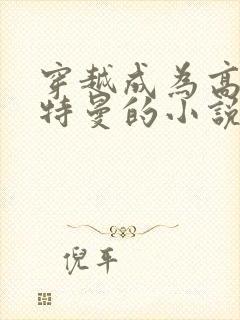 穿越成为高
特曼的小說
倪平